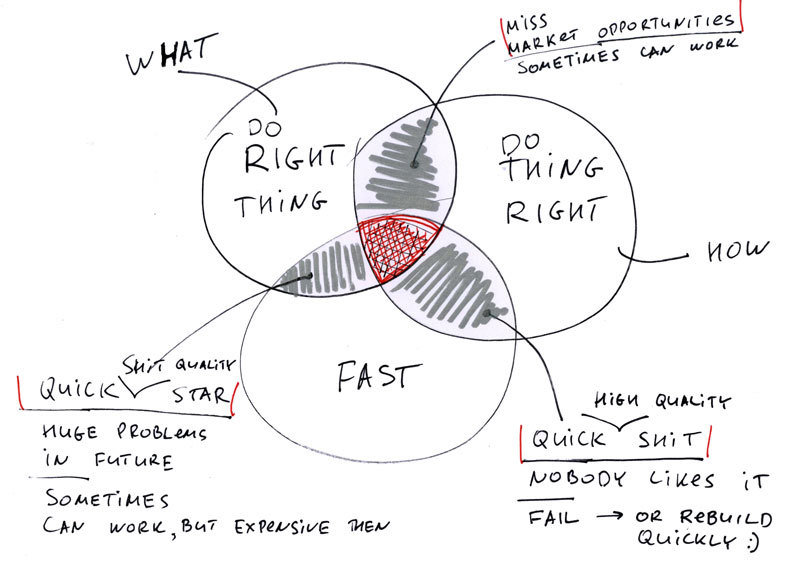 WHAT
MISS
MARKET OPPORTUNITIES
SOMETIMES CAN WORK
DO
RIGHT
THING
DO
THING
RIGHT
HOW
FAST
SHIT QUALITY
QUICK STAR
HUGE PROBLEMS
IN FUTURE
SOMETIMES
CAN WORK, BUT EXPENSIVE THEN
HIGH QUALITY
QUICK SHIT
NOBODY LIKES IT
FAIL → OR REBUILD
QUICKLY :)